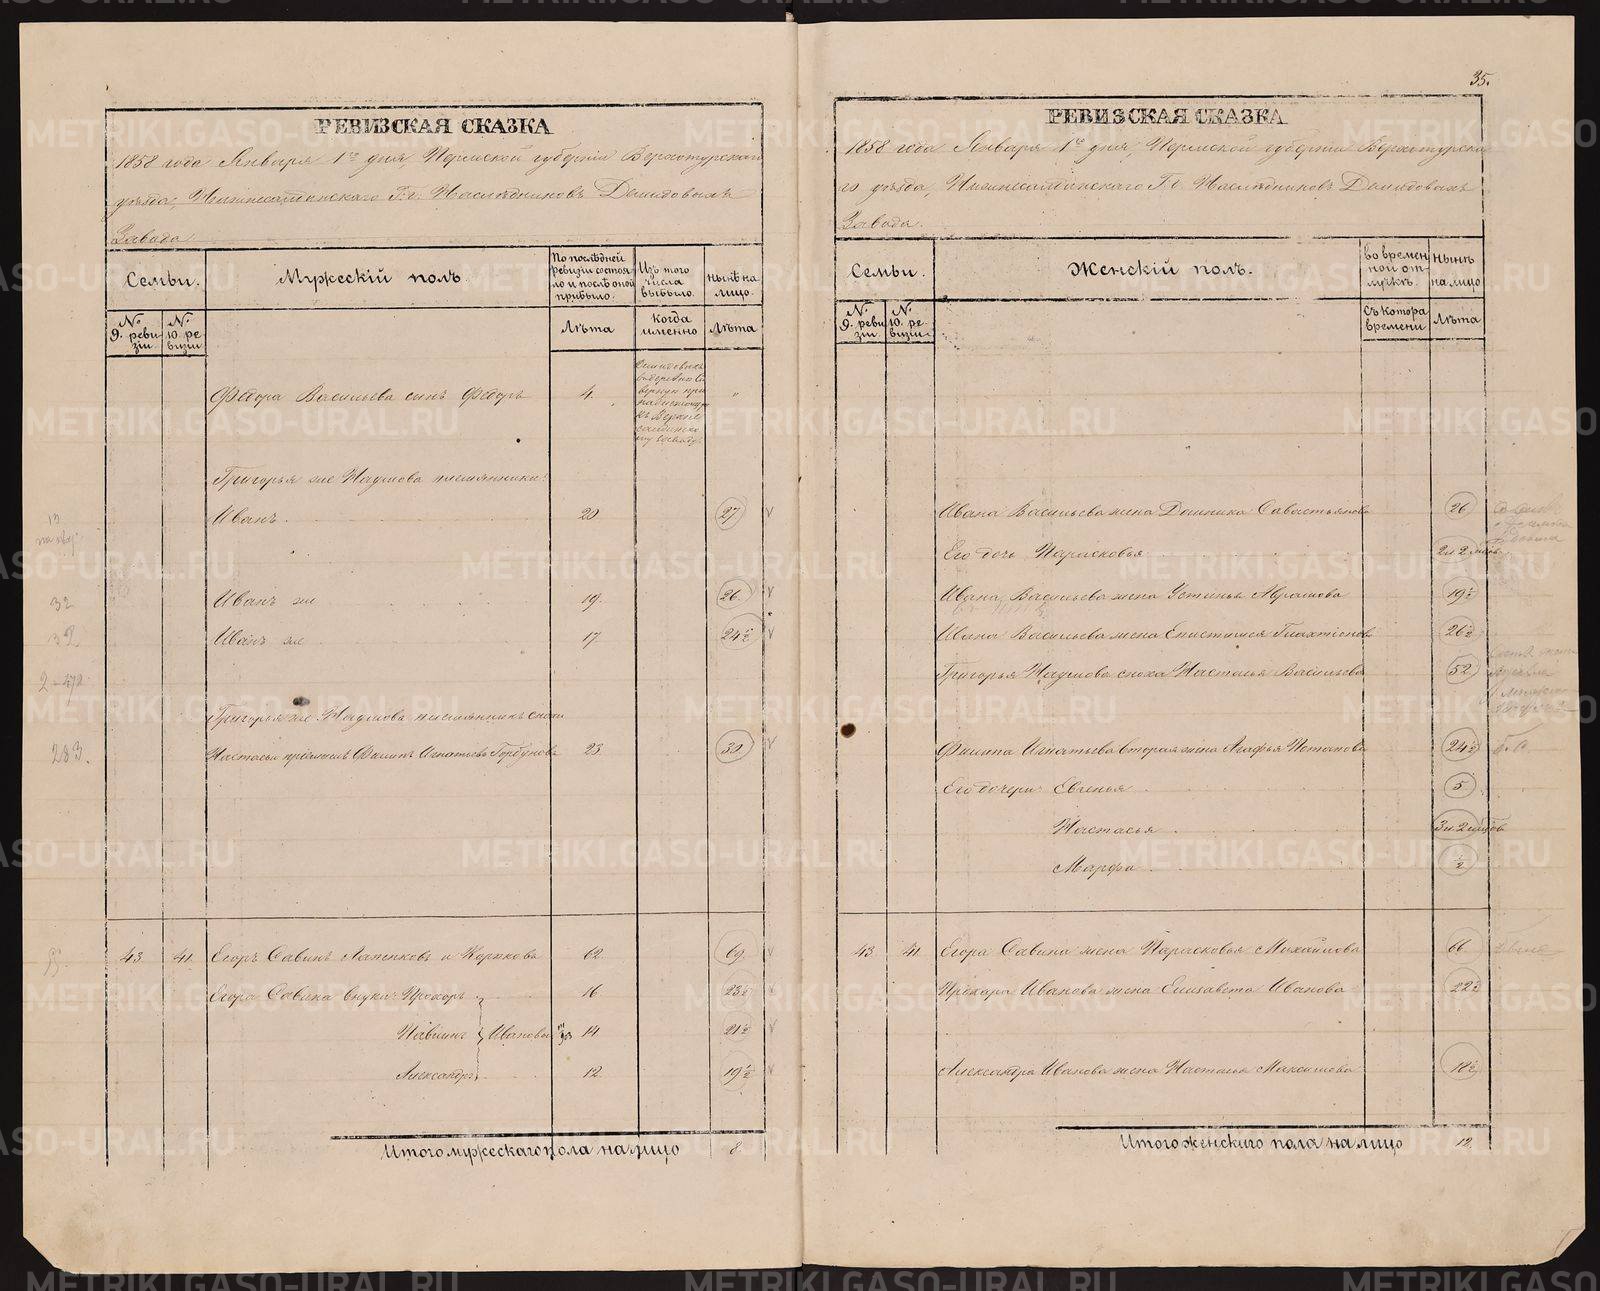 35.
РЕВИЗСКАЯ СКАЗКА
1858 года Января 1го дня, Пермской губерніи Верхотурскаго
уѣзда, Нижнесалдинскаго Г.г. Наслѣдниковъ Демидовыхъ
Завода
Семьи.
Мужескій полъ.
По послѣдней ревизіи состояло и послѣ оной прибыло.
Изъ того числа выбыло.
нынѣ на лицо.
№ 9. ревизіи.
№ 10. ревизіи
Лѣта
Когда именно
Лѣта
Федора Васильева сынъ Федоръ 4. "
Григорья же Наумова племянники:
Иванъ 20 27
Иванъ же 19. 26.
Иванъ же 17 24½
Григорья же Наумова племянникъ снохи
Настасьи пріемышъ Филипъ Игнатьевъ Горбуновъ 23. 30
43. 41. Егоръ Савинъ Лапенковъ и Коротковъ 62. 69.
Егора Савина внуки: Прохоръ 16 23½
Павлинъ Ивановы 14 21½
Александръ 12. 19½
Итого мужескаго пола на лицо 8.
32
32
283.
РЕВИЗСКАЯ СКАЗКА
1858 года Января 1го дня, Пермской губерніи Верхотурска
го уѣзда, Нижнесалдинскаго Г.г. Наслѣдниковъ Демидовыхъ
Завода.
Семьи.
Женскій полъ.
во временной отлучкѣ.
нынѣ на лицо
№ 9. ревизіи.
№ 10. ревизіи.
Съ котора времени
Лѣта
Ивана Васильева жена Домника Савастьянова 26
Его дочь Парасковья 2 и 2 мѣсяц.
Ивана Васильева жена Устинья Абрамова 19½
Ивана Васильева жена Епистимея Галахтіонова 26½
Григорья Наумова сноха Настасья Васильева 52
Филипа Игнатьева вторая жена Агафья Потапова 24½
Его дочери: Евгенья 5
Настасья 3 и 2 мѣсяцов
Марфа ½
43 41. Егора Савина жена Парасковья Михайлова 66
Прохора Иванова жена Елисавета Иванова 22½
Александра Иванова жена Настасья Максимова 18½
Итого женскаго пола на лицо 12
METRIKI.GASO-URAL.RU